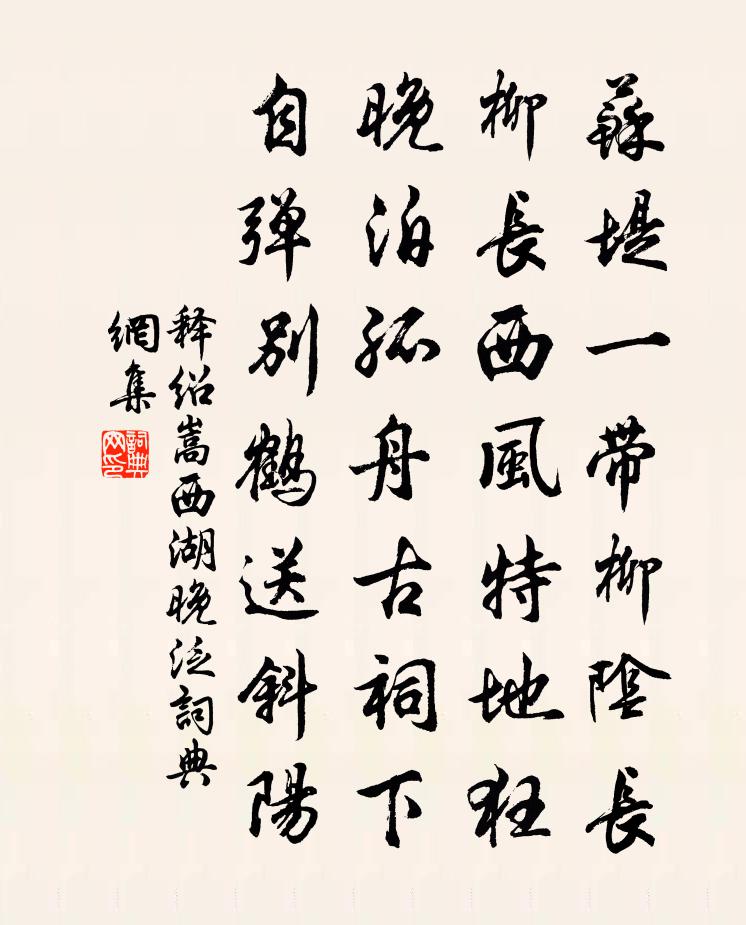 蘇堤一帶柳陰長
柳長西風特地狂
晚泊孤舟古祠下
自弹别鶴送斜陽
释紹嵩西湖晚泛詞典
網集
詞典
网印